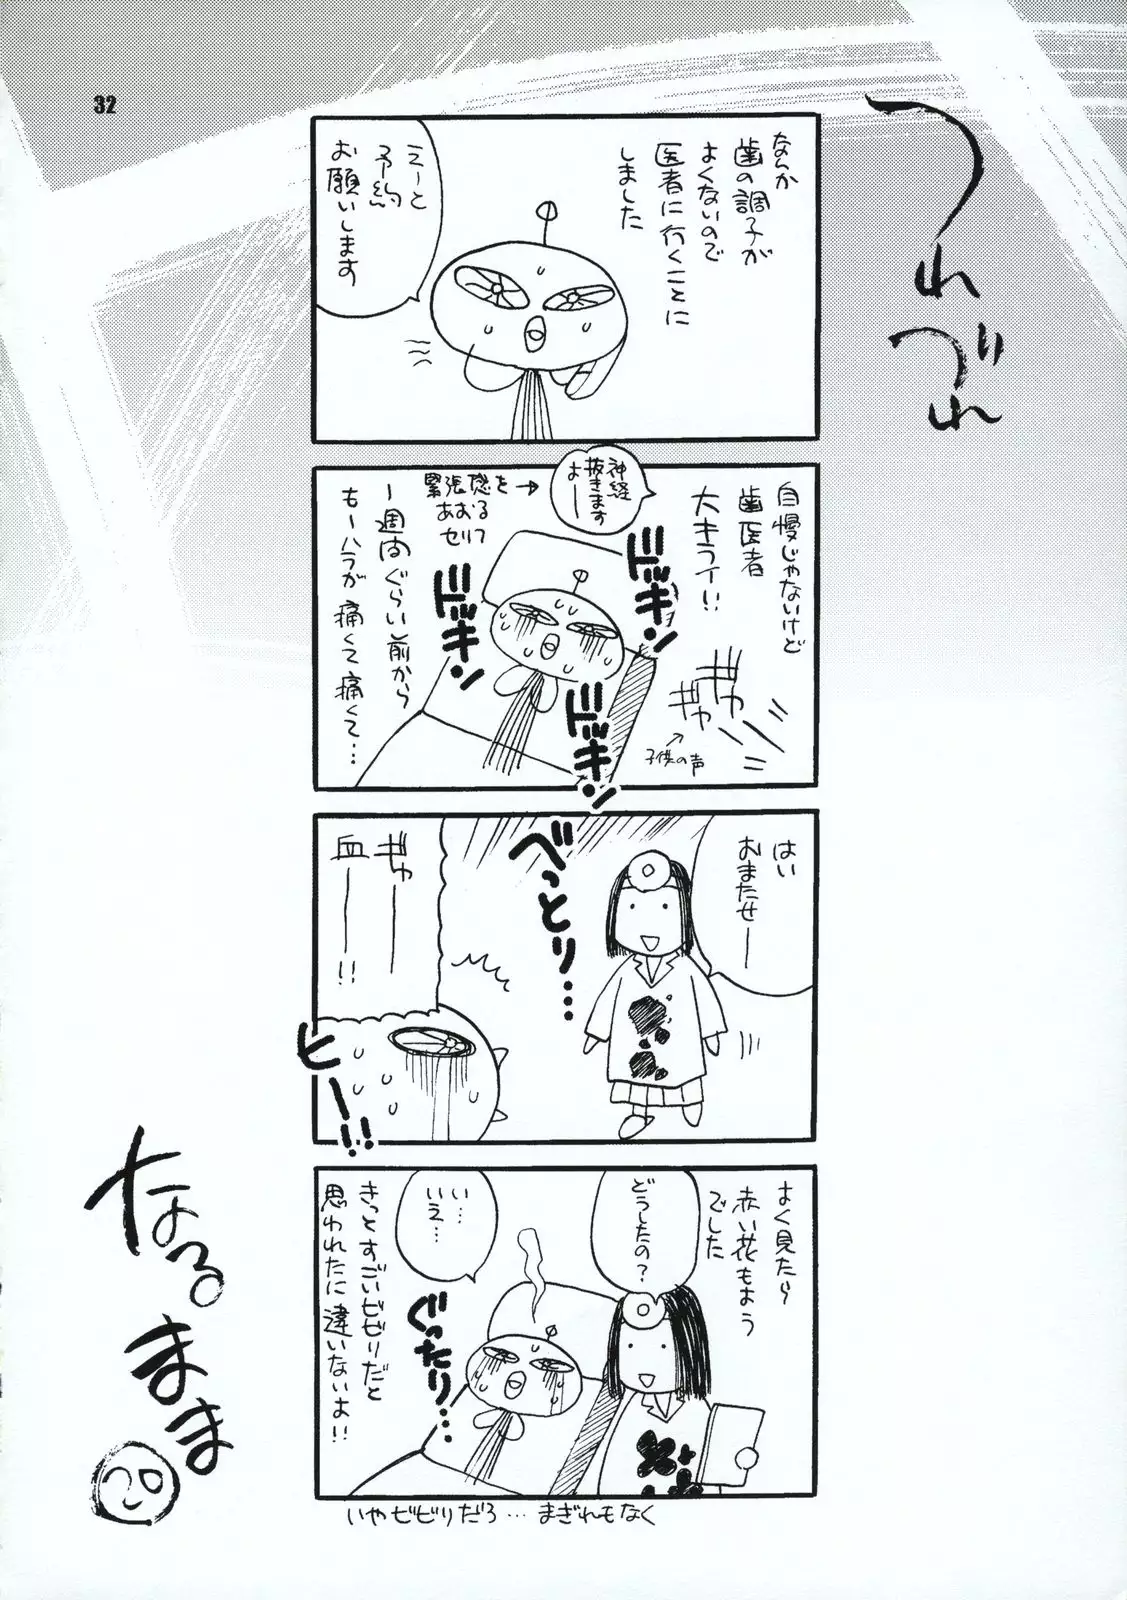 32
つれづれ
なるまま
20
なんか
歯の調子が
よくないので
医者に行くことに
しました
えーと
予約
お願いします
自慢じゃないけど
歯医者
大キライ!!
神経
抜きます
よー
緊張感を→
あおる
セリフ
一週間ぐらい前から
もーハラが痛くて痛くて…
ドッキン
ドッキン
ドッキン
ギャー
ギャー
子供の声
はい
おまたせー
べっとり…
ギャーー
血ーー!!
ヒーー!!
よく見たら
赤い花もよう
でした
どうしたの?
い…
いえ…
ぐったり…
きっとすごいビビリだと
思われたに違いないよ!!
いやビビリだろ…まぎれもなく